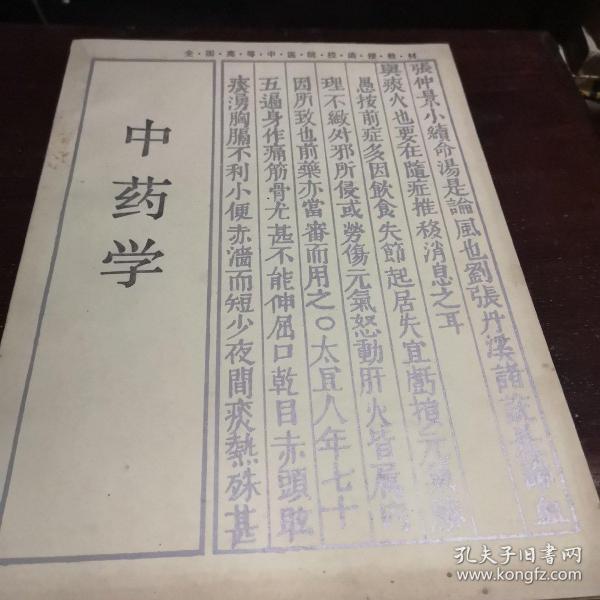 全·国·高·等·中·医·院·校·函·授·教·材
中药学
張仲景小續命湯是論風也劉張丹溪諸
與痰火也要在隨症推移消息之耳
愚按前症多因飲食失節起居失宜虧損元氣
理不緻外邪所侵或勞傷元氣怒動肝火皆屬
因所致也前藥亦當審而用之〇太宜人年七十
五遍身作痛筋骨尤甚不能伸屈口乾目赤頭眩
痰湧胸膈不利小便赤濇而短少夜間痰熱殊甚
孔夫子旧书网
www.kongfz.com